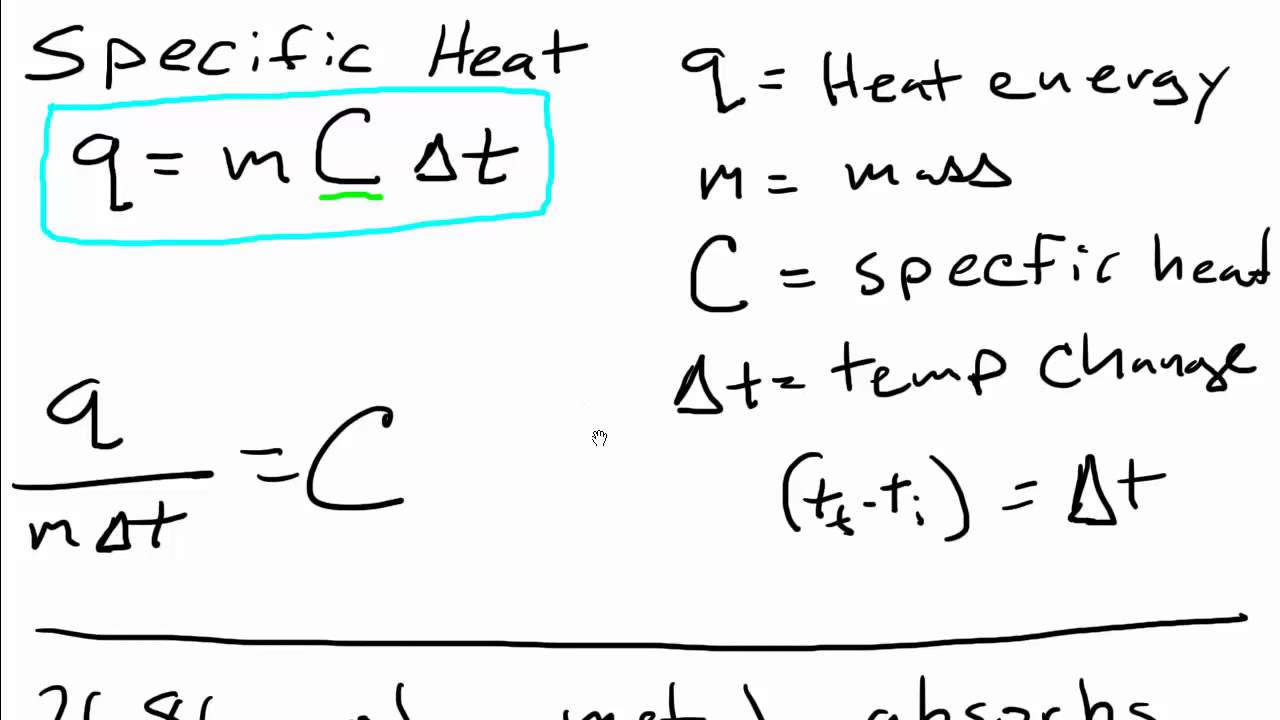 Specific Heat
q = m C Δt
q = Heat energy
m = mass
C = specfic heat
Δt = temp change
(tf - ti) = Δt
q
mΔt
= C
absorbs